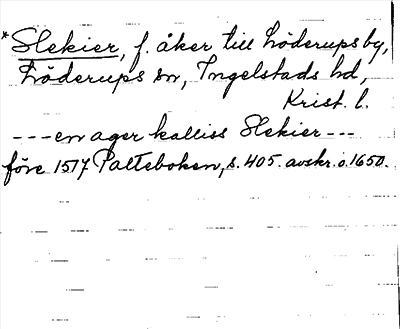 *Slekier, f. åker till Löderups by,
Löderups sn, Ingelstads hd,
Krist. l.
---en ager kalliss Slekier---
före 1517 Palteboken, s. 405. avskr. o. 1650.